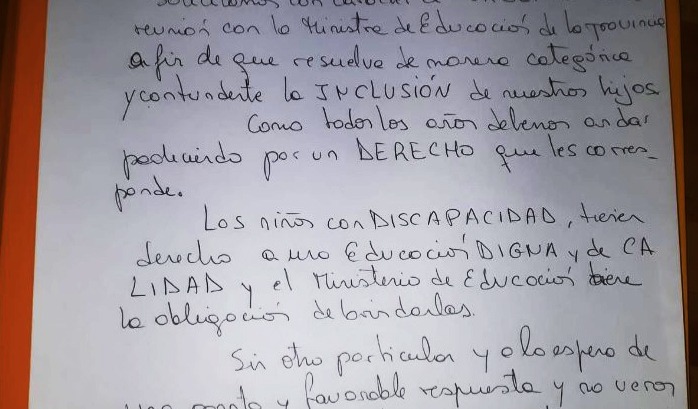 reunión con la Ministra de Educación de la provincia
a fin de que resuelva de manera categórica
y contundente la INCLUSIÓN de nuestros hijos.
Como todos los años debemos andar
padeciendo por un DERECHO que les corres_
ponde.
Los niños con DISCAPACIDAD, tienen
derecho a una Educación DIGNA y de CA
LIDAD y el Ministerio de Educación tiene
la obligación de brindarlas.
Sin otro particular y a la espera de
una pronta y favorable respuesta y no vernos